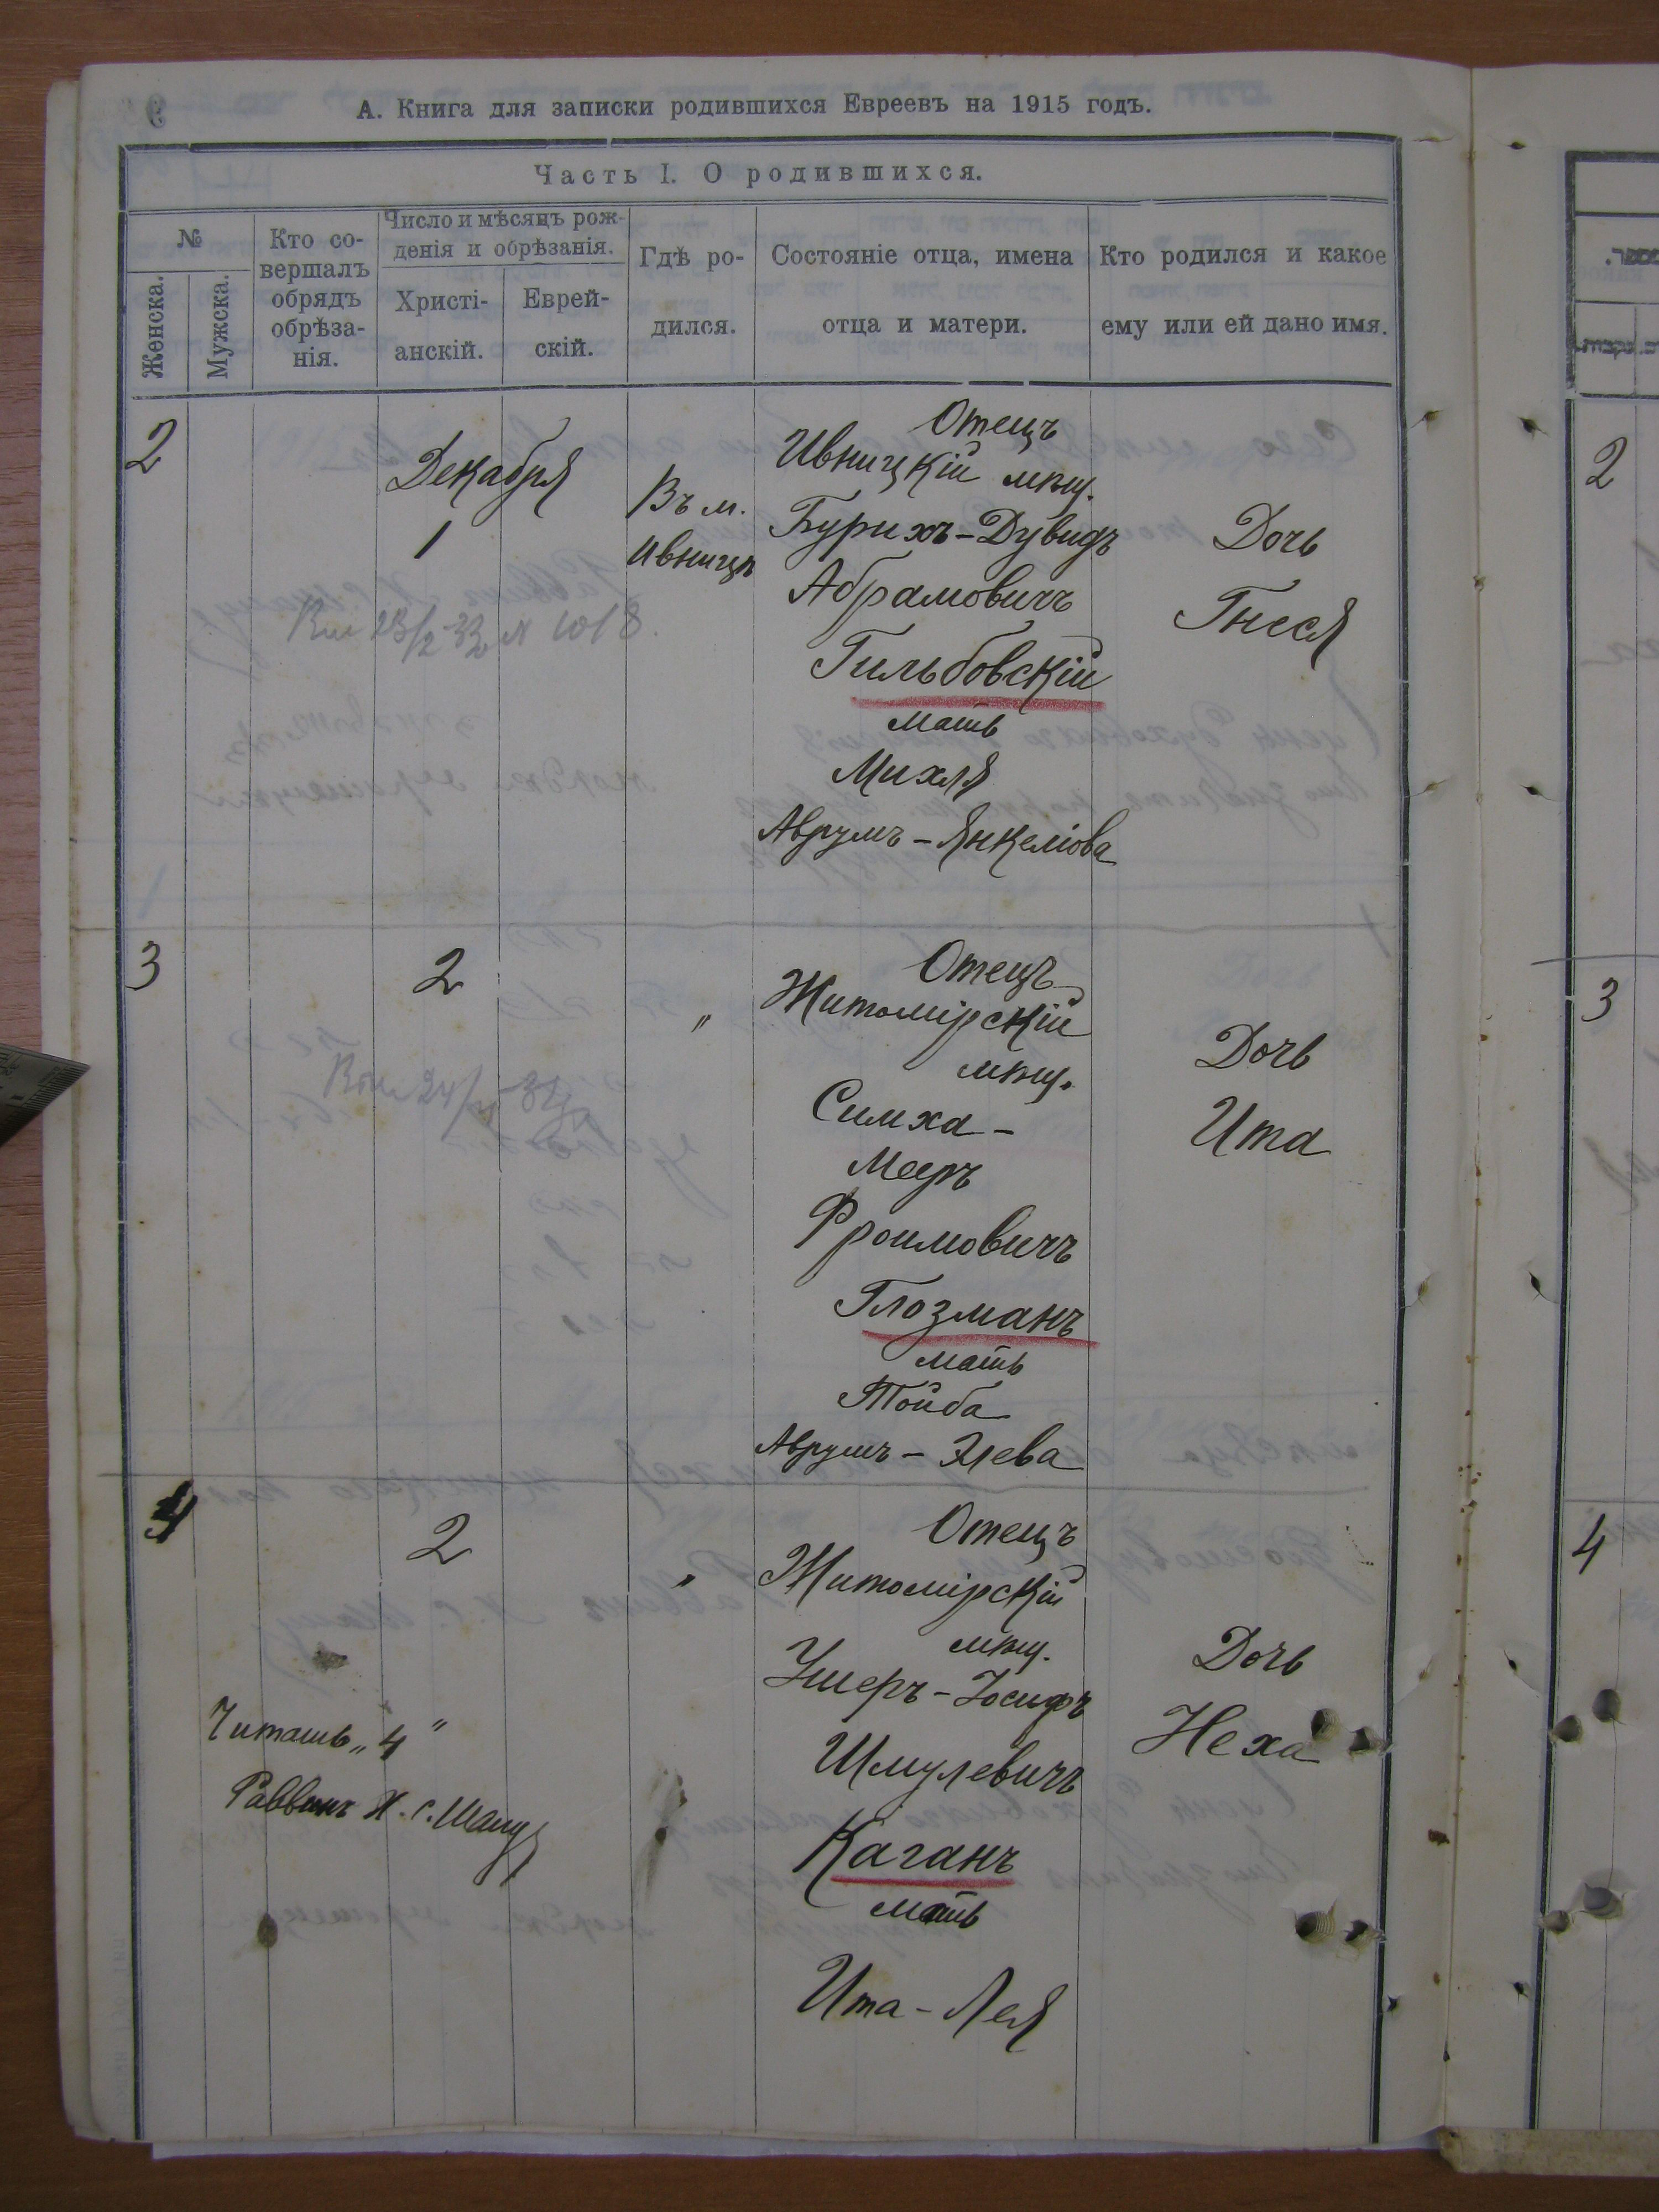 А. Книга для записки родившихся Евреевъ на 1915 годъ.
Часть I. О родившихся.
№
Женска.
Мужска.
Кто со-
вершалъ
обрядъ
обрѣза-
нія.
Число и мѣсяцъ рож-
денія и обрѣзанія.
Христі-
анскій.
Еврей-
скій.
Гдѣ ро-
дился.
Состояніе отца, имена
отца и матери.
Кто родился и какое
ему или ей дано имя.
2
Декабря
1
Въ м.
Ивницѣ
Отецъ
Ивницкій мѣщ.
Бурихъ-Дувидъ
Абрамовичъ
Гильбовскій
мать
Михля
Аврумъ-Янкеліова
Дочь
Гнеся
3
2
"
Отецъ
Житомірскій
мѣщ.
Симха-
Мееръ
Фроимовичъ
Глозманъ
мать
Тойба
Аврумъ-Элева
Дочь
Ита
4
2
"
Отецъ
Житомірскій
мѣщ.
Ушеръ-Іосифъ
Шмулевичъ
Каганъ
мать
Ита-Лея
Дочь
Неха
Читать „4“
Раввинъ Х. С.
2
3
4